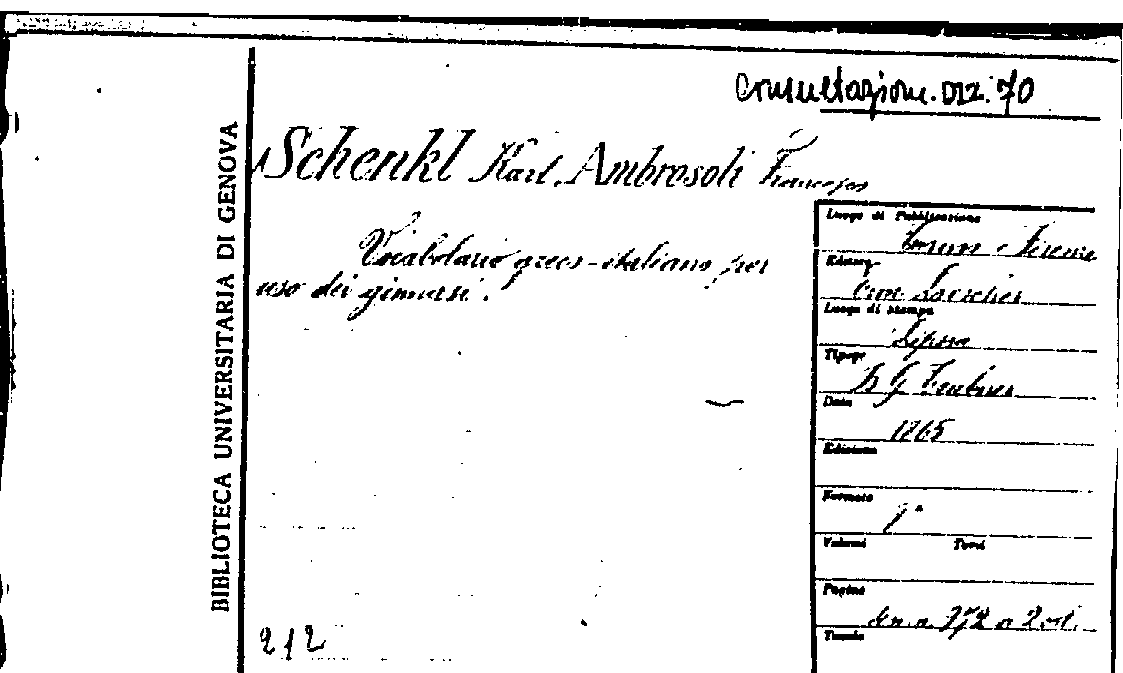 Consultazione. DIZ. 70
BIBLIOTECA UNIVERSITARIA DI GENOVA
Schenkl Karl. Ambrosoli Francesco
Vocabolario greco-italiano per
uso dei ginnasi.
Luogo di Pubblicazione
Torino e Firenze
Editore
Erm Loescher
Luogo di stampa
Lipsia
Tipogr
B G Teubner
Data
1865
Edizione
Formato
Volumi Tomi
Pagine
212